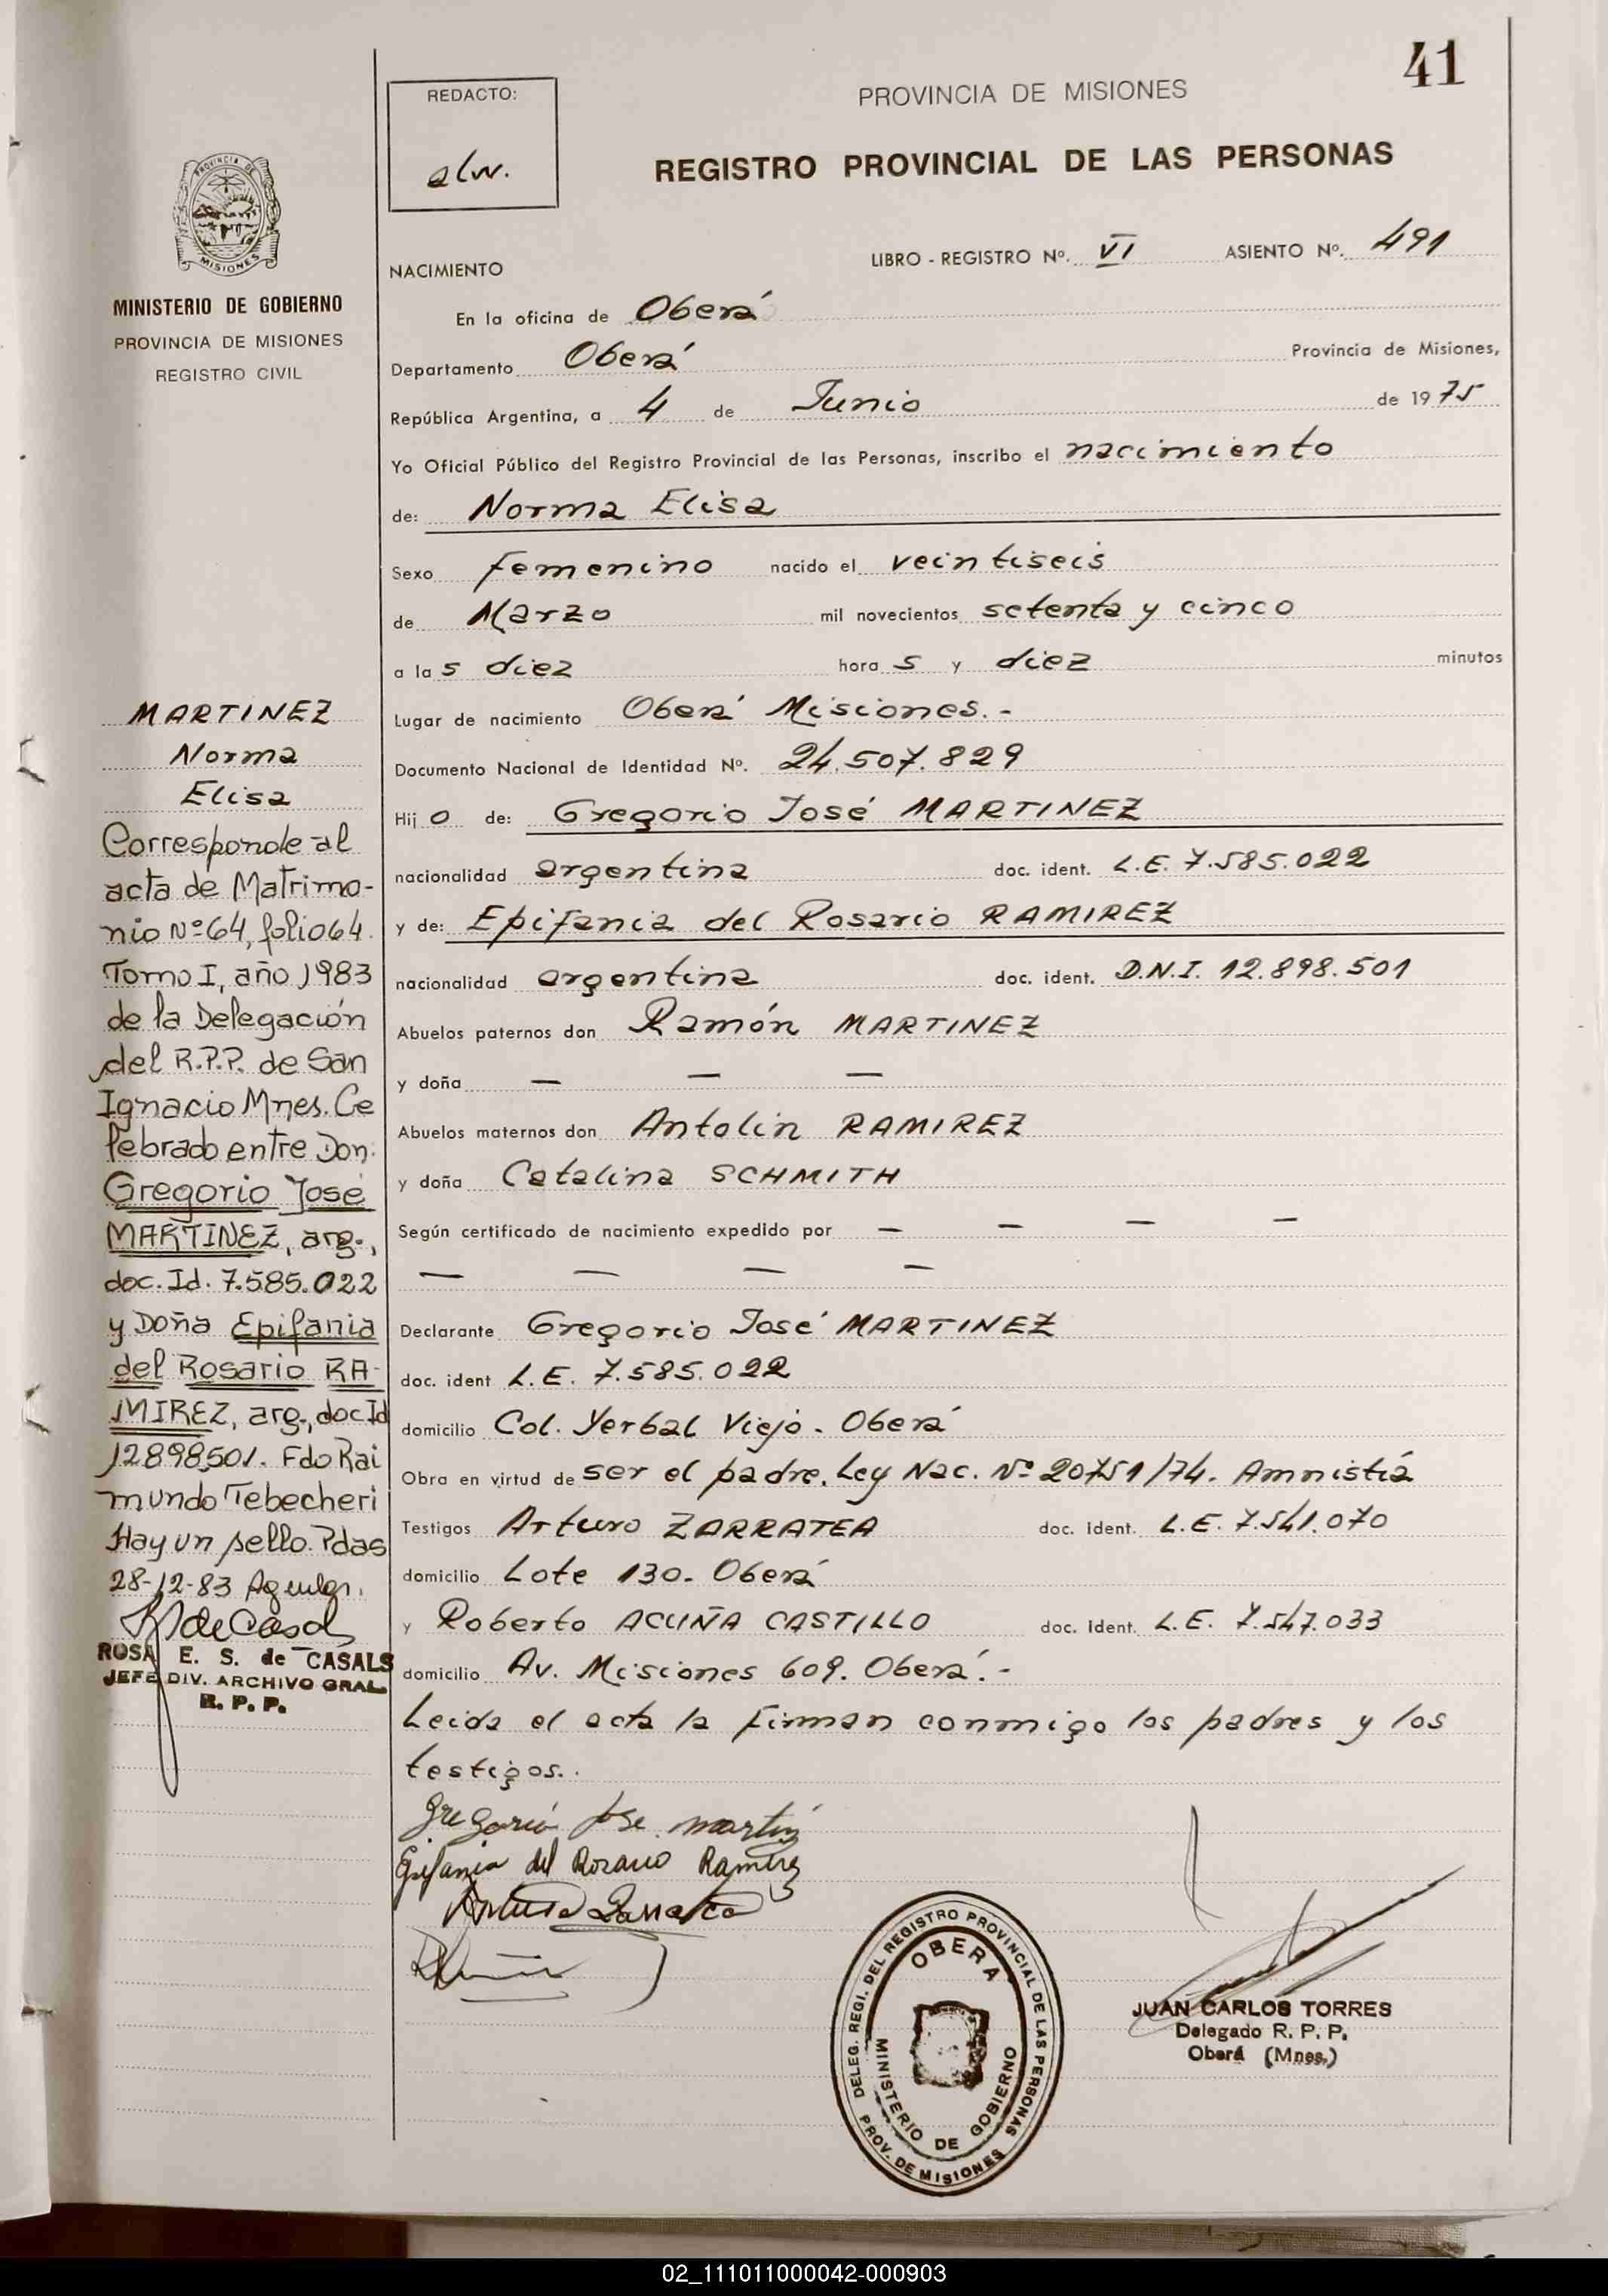 41
REDACTO:
PROVINCIA DE MISIONES
REGISTRO PROVINCIAL DE LAS PERSONAS
LIBRO - REGISTRO Nº. VI ASIENTO Nº. 491
NACIMIENTO
En la oficina de Oberá
Departamento Oberá Provincia de Misiones,
República Argentina, a 4 de Junio de 1975
Yo Oficial Público del Registro Provincial de las Personas, inscribo el nacimiento
de: Norma Elisa
Sexo femenino nacido el veintiseis
de Marzo mil novecientos setenta y cinco
a las diez horas y diez minutos
Lugar de nacimiento Oberá Misiones.-
Documento Nacional de Identidad Nº. 24.507.829
Hijo de: Gregorio José MARTINEZ
nacionalidad argentina doc. ident. L.E. 7.585.022
y de: Epifania del Rosario RAMIREZ
nacionalidad argentina doc. ident. D.N.I. 12.898.501
Abuelos paternos don Ramón MARTINEZ
y doña — — —
Abuelos maternos don Antolin RAMIREZ
y doña Catalina SCHMITH
Según certificado de nacimiento expedido por — — — —
— — — —
Declarante Gregorio José MARTINEZ
doc. ident L.E. 7.585.022
domicilio Col. Yerbal Viejo. Oberá
Obra en virtud de ser el padre. Ley Nac. Nº 20751/74. Amnistía
Testigos Arturo ZARRATEA doc. Ident. L.E. 7.541.070
domicilio Lote 130. Oberá
y Roberto ACUÑA CASTILLO doc. Ident. L.E. 7.547.033
domicilio Av. Misiones 609. Oberá.-
Leida el acta la firman conmigo los padres y los
testigos..
Gregorio Jose martinz
Epifania del Rosario Ramirez
Arturo Zarratea
JUAN CARLOS TORRES
Delegado R. P. P.
Oberá (Mnes.)
DELEG. REGI. DEL REGISTRO PROVINCIAL DE LAS PERSONAS
PROV. DE MISIONES
OBERA
MINISTERIO DE GOBIERNO
PROVINCIA DE
MISIONES
MINISTERIO DE GOBIERNO
PROVINCIA DE MISIONES
REGISTRO CIVIL
MARTINEZ
Norma
Elisa
Corresponde al
acta de Matrimo-
nio Nº 64, folio 64.
Tomo I, año 1983
de la Delegación
del R.P.P. de San
Ignacio Mnes. Ce
lebrado entre Don
Gregorio José
MARTINEZ, arg.,
doc. Id. 7.585.022
y Doña Epifania
del Rosario RA-
MIREZ, arg., doc Id
12898501. Fdo Rai
mundo Tebecheri
Hay un sello. Pdas
28-12-83
ROSA E. S. de CASALS
JEFE DIV. ARCHIVO GRAL.
R. P. P.
02_111011000042-000903